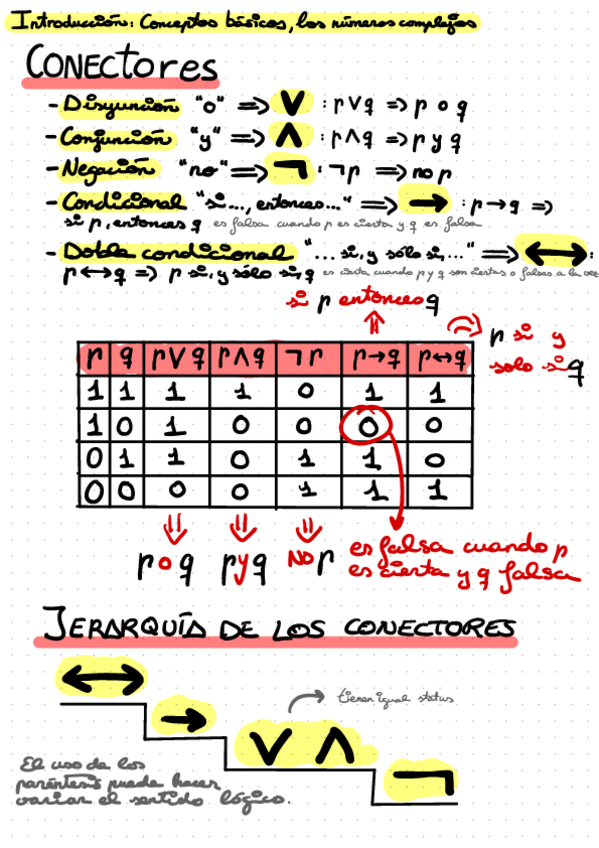 Introducción: Conceptos básicos, los números complejos
CONECTORES
- Disyunción "o" => ∨ : p∨q => p o q
- Conjunción "y" => ∧ : p∧q => p y q
- Negación "no" => ¬ : ¬p => no p
- Condicional "si..., entonces..." => → : p→q =>
si p, entonces q es falsa cuando p es cierta y q es falsa
- Doble condicional "... si, y sólo si,..." => ↔ :
p↔q => p si, y sólo si, q es cierta cuando p y q son ciertas o falsas a la vez
si p entonces q
p si y
solo si q
p q p∨q p∧q ¬p p→q p↔q
1 1 1 1 0 1 1
1 0 1 0 0 0 0
0 1 1 0 1 1 0
0 0 0 0 1 1 1
p o q p y q NO p es falsa cuando p
es cierta y q falsa
JERARQUÍA DE LOS CONECTORES
↔
→
tienen igual status
∨ ∧
¬
El uso de los
paréntesis puede hacer
variar el sentido lógico.